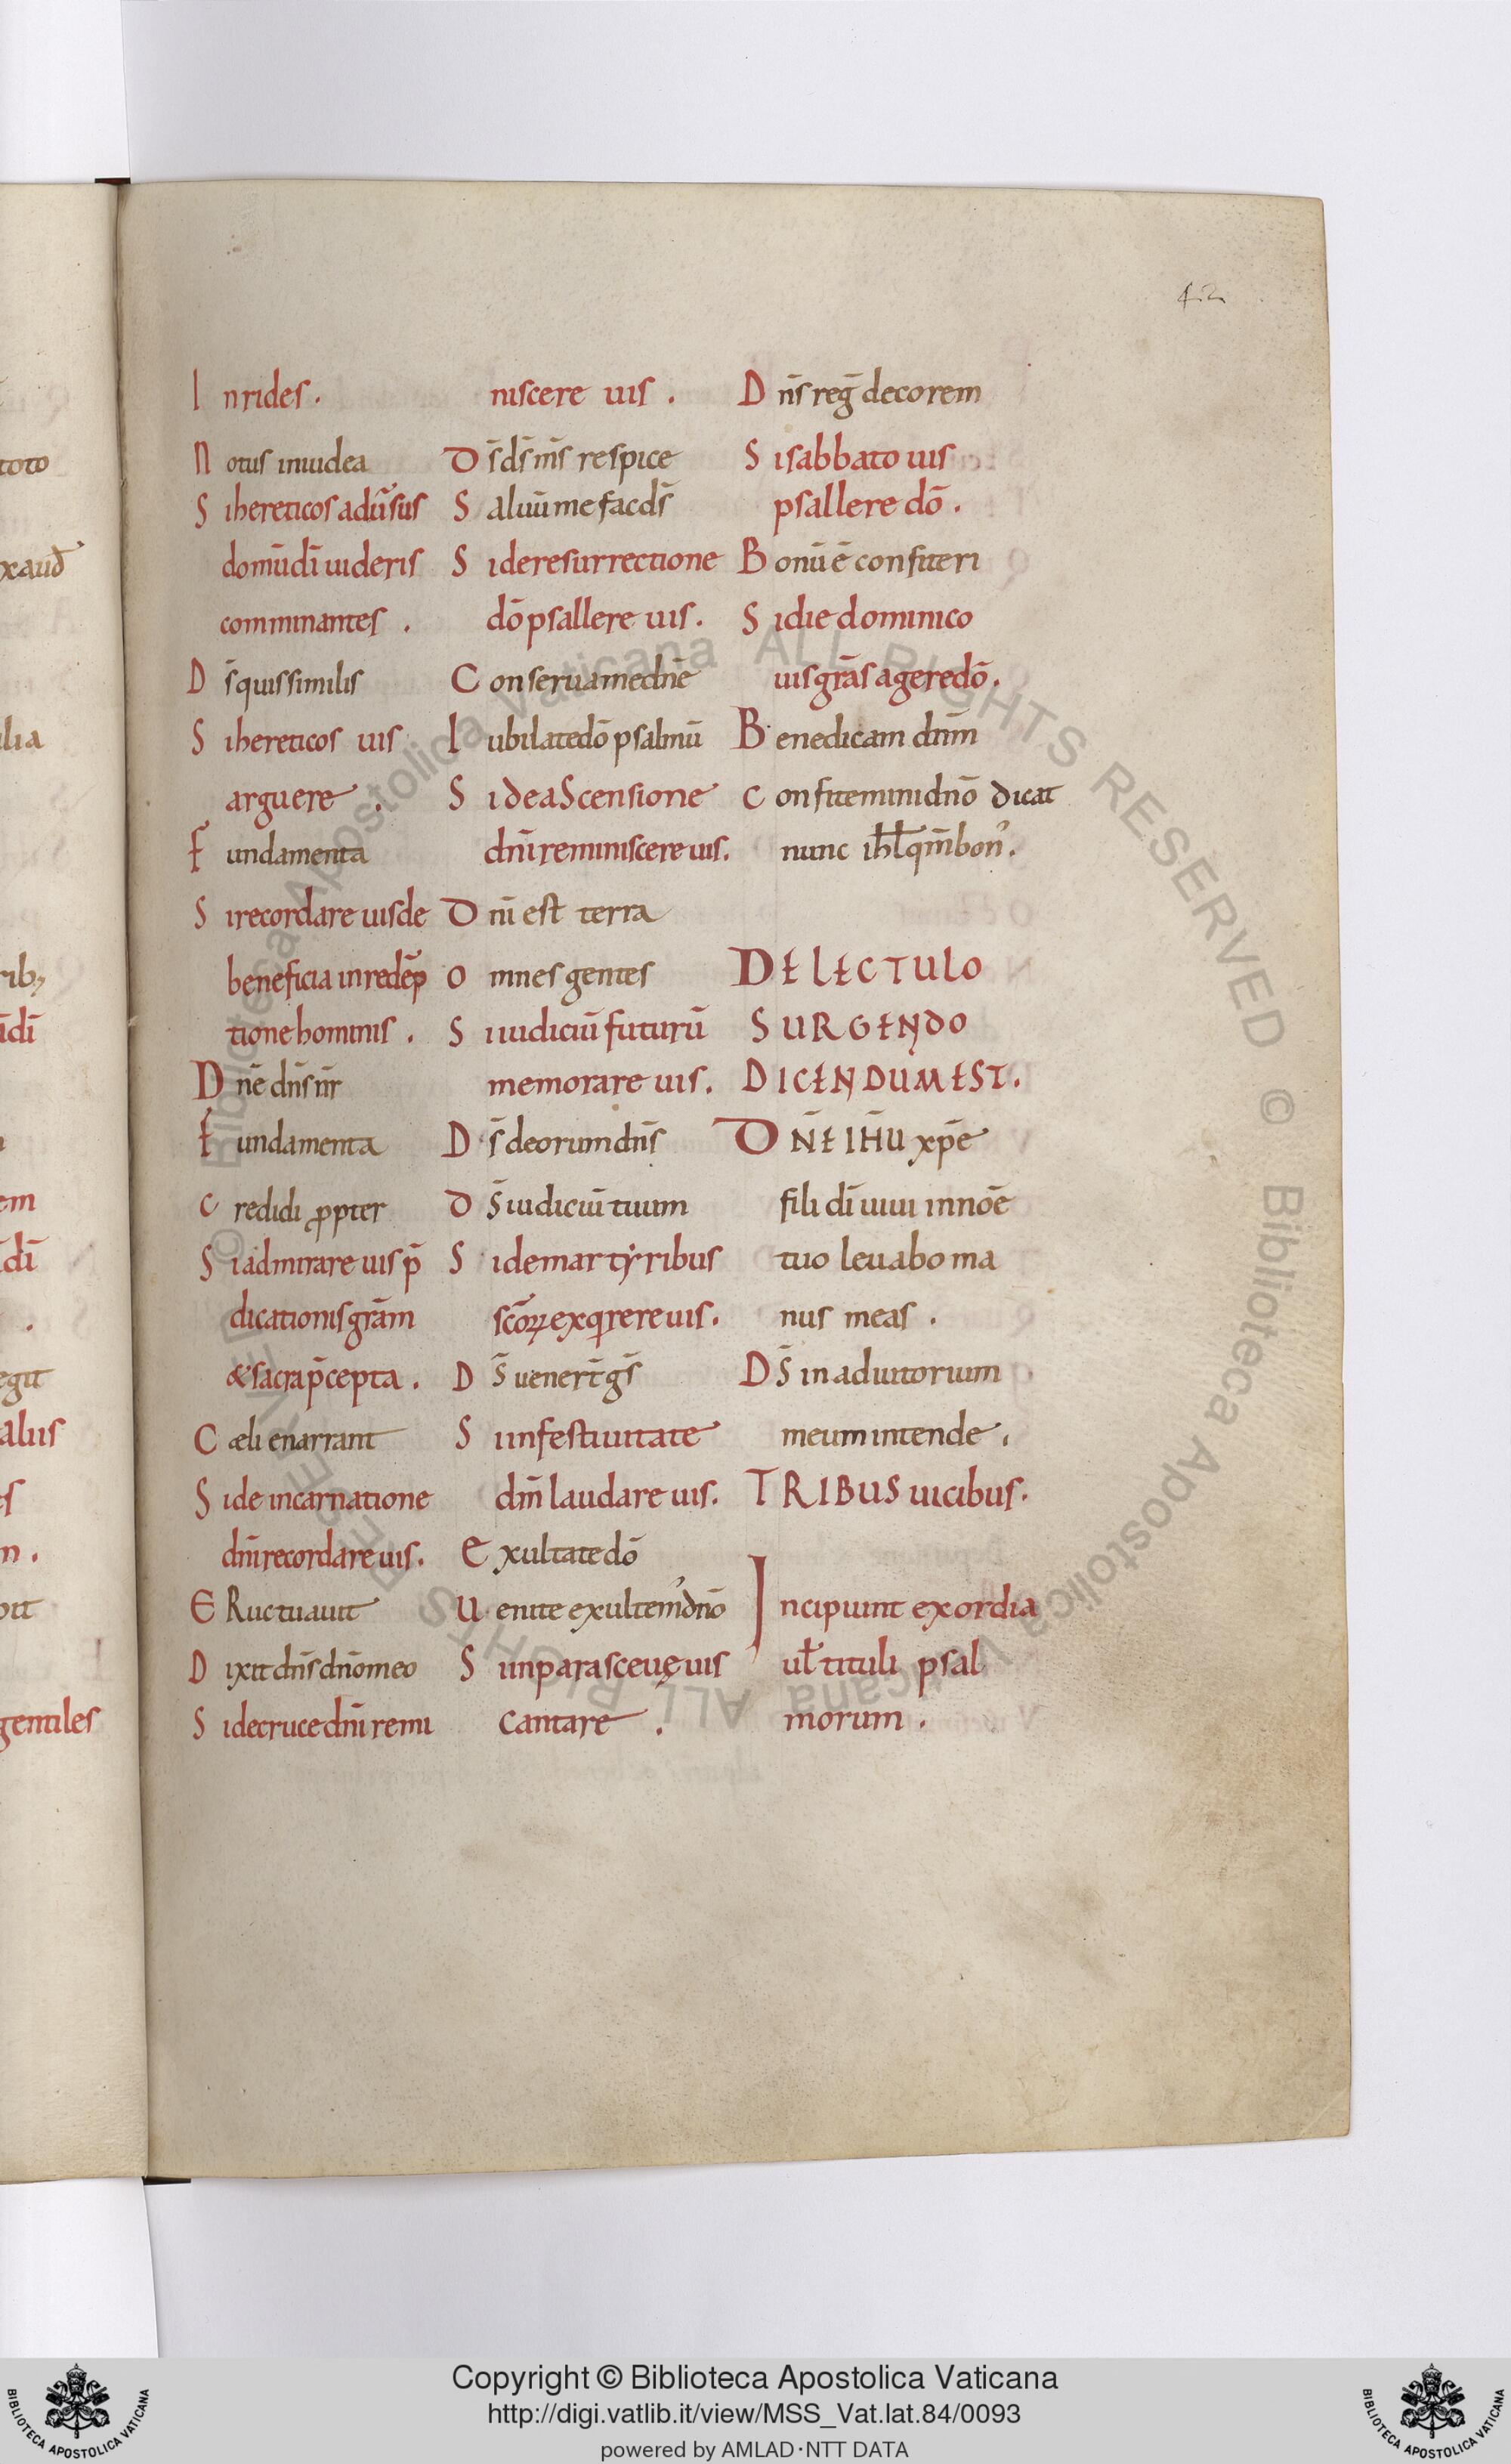 42
Inrides.
Notus iniudea
Sihereticos adūsus
domūdī uideris
comminantes.
Ds̄ quissimilis
Sihereticos uis
arguere.
Fundamenta
Sirecordare uisde
beneficia inredēp
tione hominis.
Dnē dn̄s nr̄
Fundamenta
Credidi ꝓpter
Siadmirare uis p̄
dicationis grām
& sacrap̄cepta.
Cæli enarrant
Side incarnatione
dnī recordare uis.
ERuctauit
Dixit dn̄s dn̄o meo
Sidecruce dnī remi
niscere uis.
Ds̄ ds̄ ms̄ respice
Saluū me fac ds̄
Sideresurrectione
dō psallere uis.
Conserua me dnē
Iubilate dō psalmū
SideaScensione
dnī reminiscere uis.
Dnī est terra
Omnes gentes
Siiudiciū futurū
memorare uis.
Ds̄ deorum dn̄s
Ds̄ iudiciū tuum
Sidemartyribus
scōꝝ exqrere uis.
Ds̄ uener̄ gs̄
Siinfestiuitate
dm̄ laudare uis.
Exultate dō
Uenite exultem' dnō
Siinparasceuę uis
cantare.
Dn̄s reḡ decorem
Sisabbato uis
psallere dō.
Bonū ē confiteri
Sidie dominico
uis grās agere dō.
Benedicam dnm̄
Confitemini dnō dicat
nunc ihƚ qm̄ bon'.
DE LECTULO
SURGENDO
DICENDUM EST.
DN̄E IHŪ xp̄e
fili dī uiui in noē
tuo leuabo ma
nus meas.
Ds̄ in adiutorium
meum intende.
TRIBUS uicibus.
Incipiunt exordia
uƚ tituli psal
morum.
Copyright © Biblioteca Apostolica Vaticana
http://digi.vatlib.it/view/MSS_Vat.lat.84/0093
powered by AMLAD·NTT DATA
BIBLIOTECA APOSTOLICA VATICANA
BIBLIOTECA APOSTOLICA VATICANA
© Biblioteca Apostolica Vaticana ALL RIGHTS RESERVED
© Biblioteca Apostolica Vaticana ALL RIGHTS RESERVED